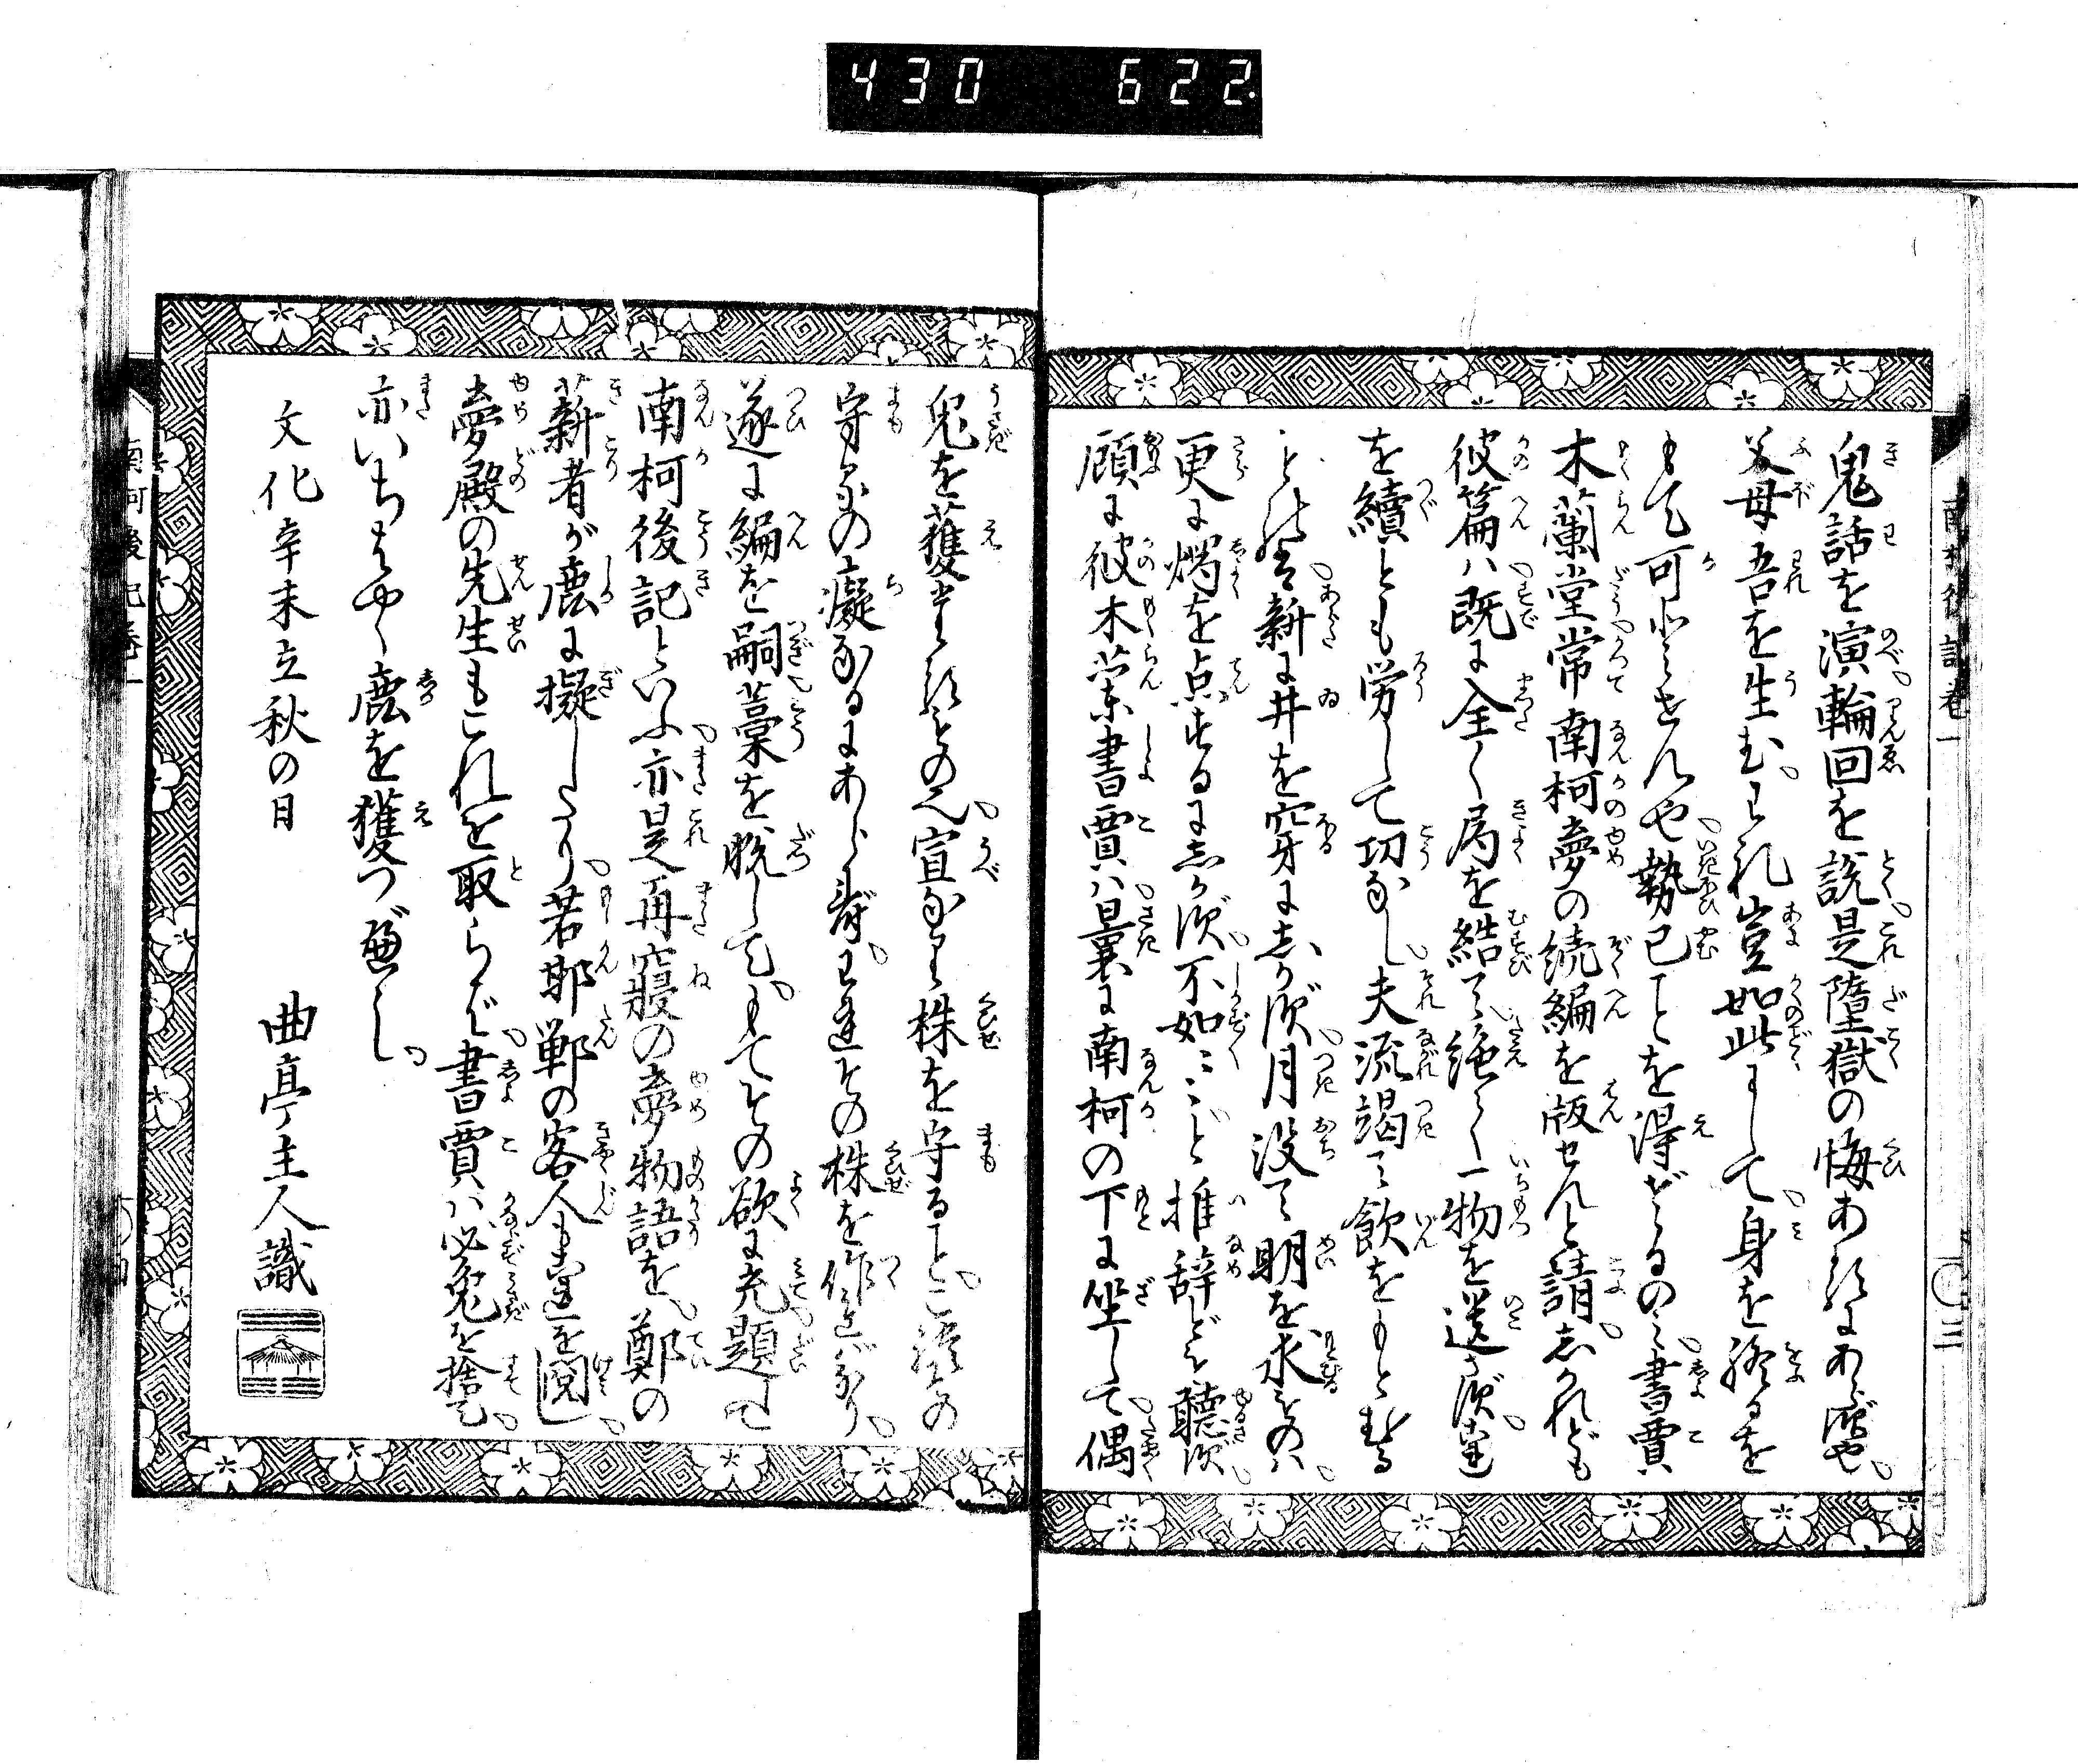 430 622
南柯後記巻一
鬼話を演輪回を説是墮獄の悔あるにあらずや
父母吾を生むわれ豈如此にして身を終るを
もて可とせんや勢已ことを得ざるのみ書賈
木蘭堂常南柯夢の続編を版せんと請しかれども
彼篇ハ既に全く局を結て絶て一物を遺さず是
を續とも労して功なし夫流竭て飲をもとむる
ときは新に井を穿にしかず月没て明を求ものハ
更に燭を点するにしかず不如ニゝと推辞ども聽ず
顧に彼木蘭書賈ハ曩に南柯の下に坐して偶
兎を獲たるもの也宜なり株を守ること今その
守るの癡なるにあらずわれ是その株を作ればなり
遂に編を嗣藁を脱してもてその欲に充題して
南柯後記といふ亦是再寝の夢物語を鄭の
薪者が鹿に擬したり若邯鄲の客人も是を閲し
夢殿の先生もこれを取らバ書賈ハ必兎を捨て
亦いちはやく鹿を獲つべし
文化辛未立秋の日　曲亭主人識
南柯後記巻一